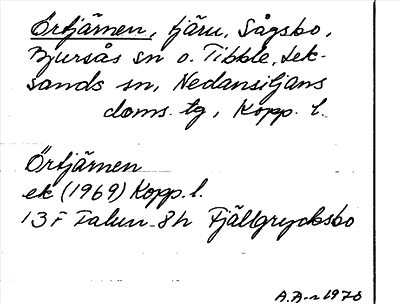 Örtjärnen, tjärn, Sågsbo,
Bjursås sn o. Tibble, Lek-
sands sn, Nedansiljans
doms. tg, Kopp. l.
Örtjärnen
ek (1969) Kopp. l.
13 F Falun 8h Fjällgrycksbo
A.A-n 1978